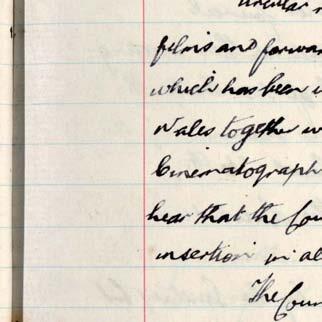 films and forwar
which has been i
Wales together w
Cinematograph
hear that the Cou
insertion in al
The Coun